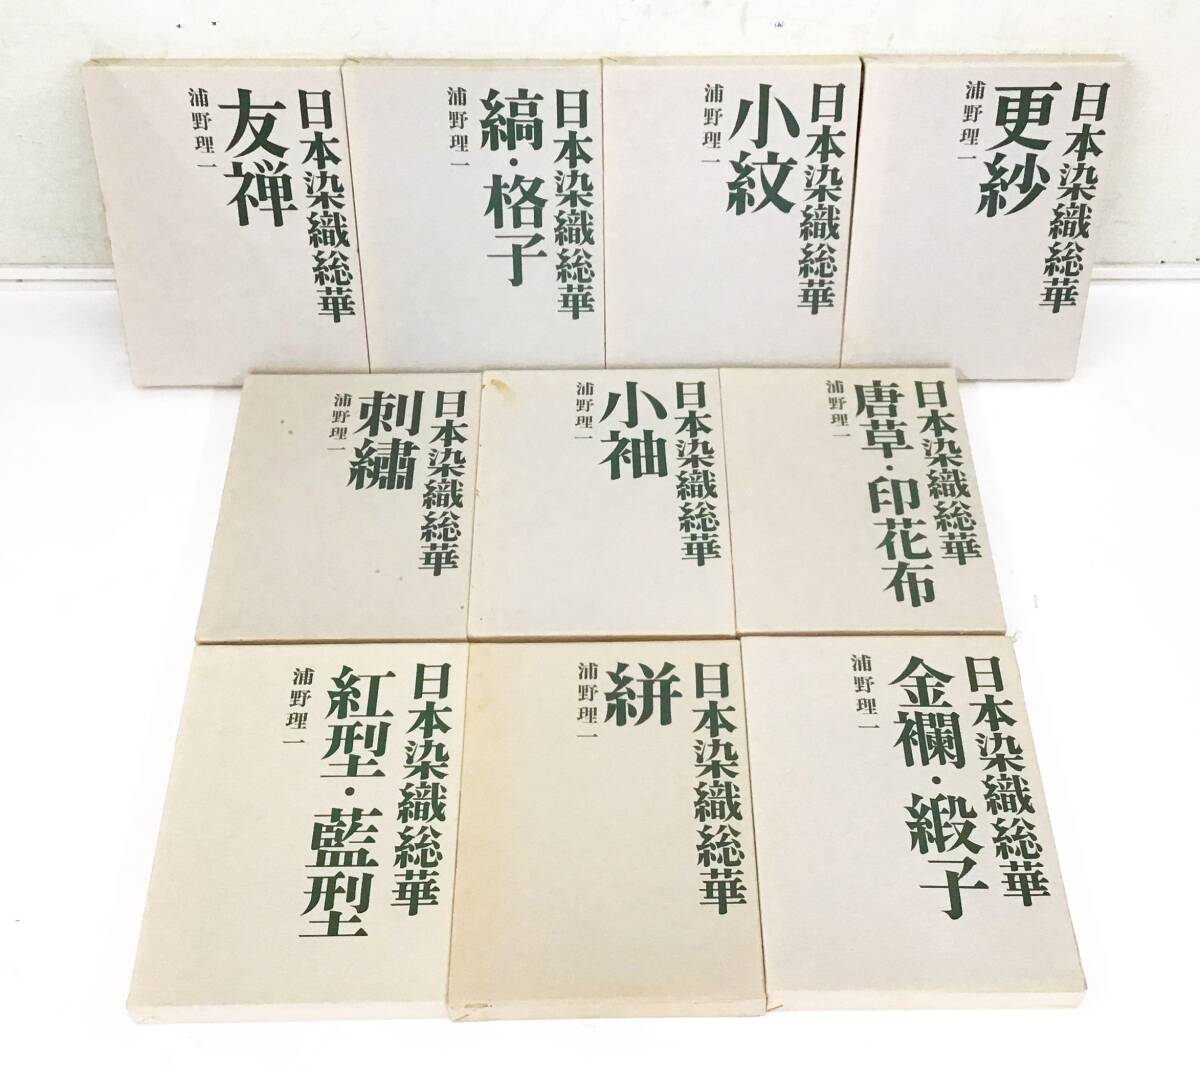 日本染織総華
友禅
浦野理一
日本染織総華
縞・格子
浦野理一
日本染織総華
小紋
浦野理一
日本染織総華
更紗
浦野理一
日本染織総華
刺繡
浦野理一
日本染織総華
小袖
浦野理一
日本染織総華
唐草・印花布
浦野理一
日本染織総華
紅型・藍型
浦野理一
日本染織総華
絣
浦野理一
日本染織総華
金襴・緞子
浦野理一